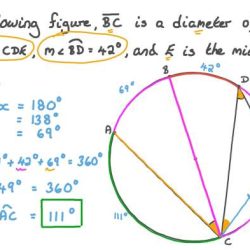 owing figure, BC is a diameter o
CDE, m∠BD = 42°, and E is the mi
x = 180°
= 138°
= 69°
1° + 42° + 69° = 360°
49° = 360°
AC = 111°
69°
B
42°
D
A
111°
C